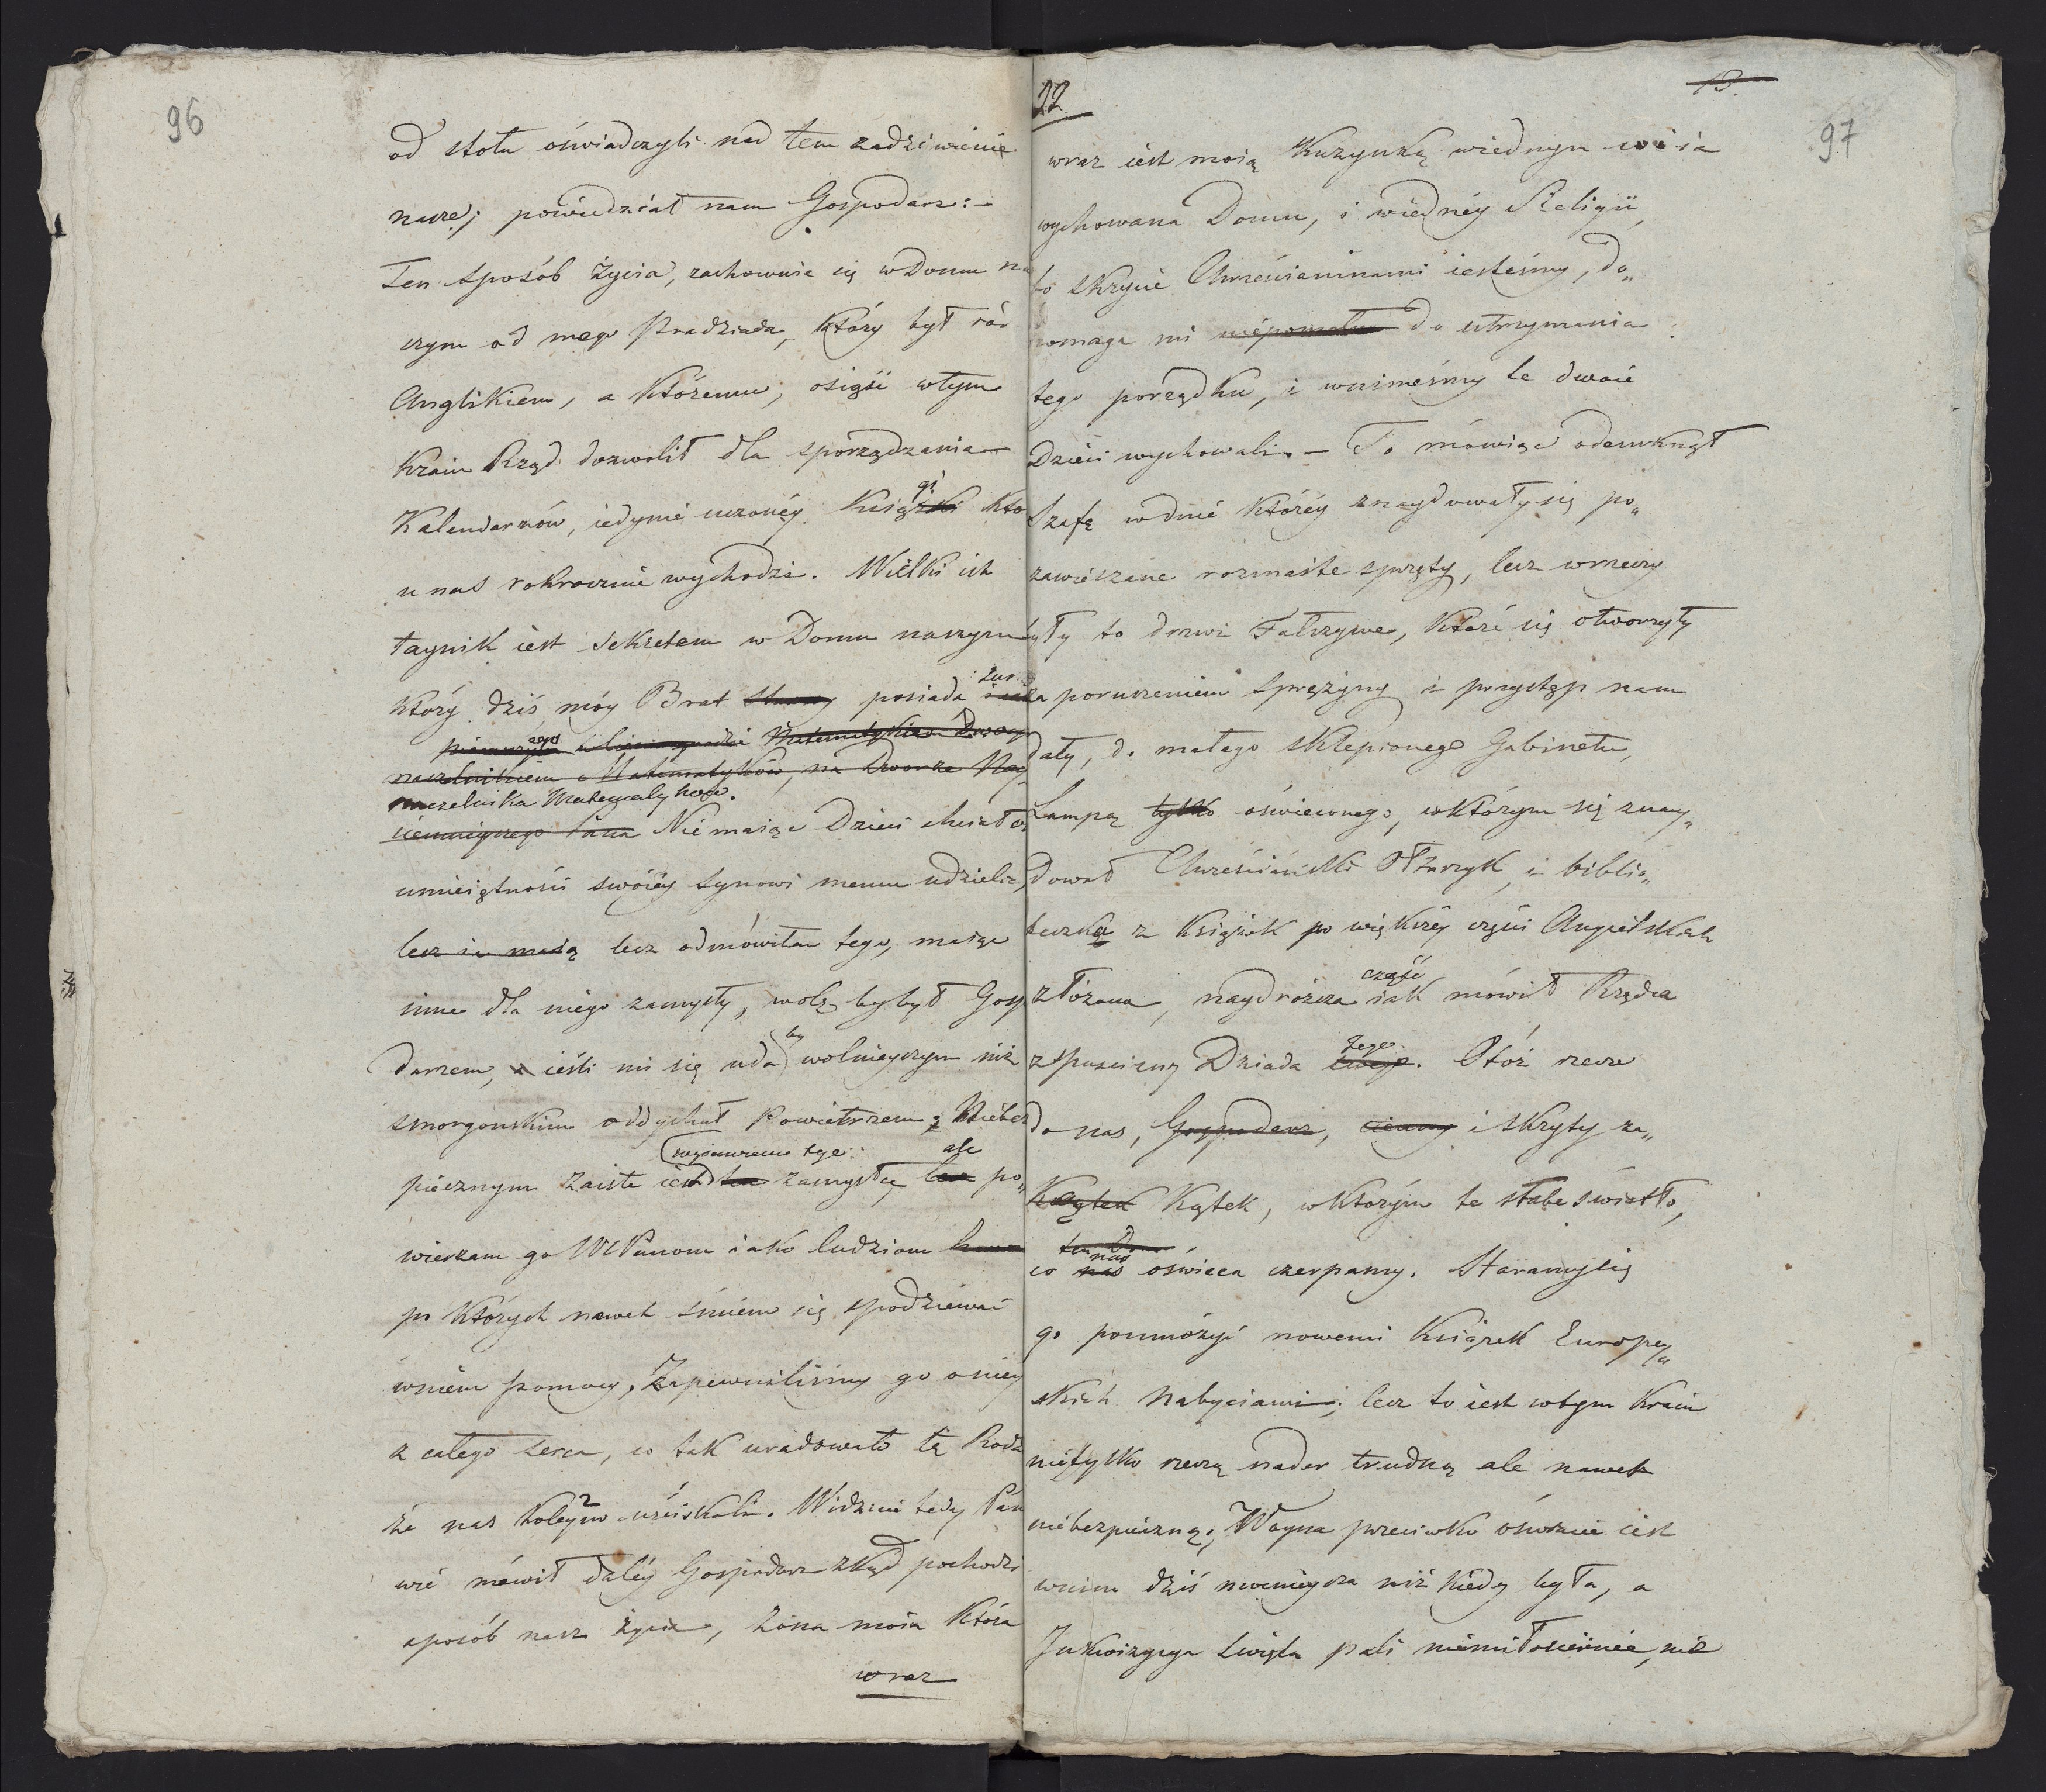 96
od stołu oświadczyli nad tem zadziwienie
nasze; powiedział nam Gospodarz:-
Ten sposób życia, zachownie się w Domu na
szym od mego Pradziada, który był ró
Anglikiem, a któremu, osieść w tym
Kraiu Rząd dozwolił dla sporządzania
Kalendarzów, iedynie uczonéy Księżki Kto
gi
u nas rokrocznie wychodzi. Wielki ich
taynik iest sekretem w Domu naszym
który dziś móy Brat posiada
naczelnikiem Matematyków, na Dworze Nay
naczelnika Matematyków.
ieśnieyszego Pana Nie maiąc Dzieci chciał
umieiętności swoiéy synowi memu udzielić,
lecz ia maią lecz odmówiłam tego, maiąc
inne dla niego zamysły, wolę by był Gosp
darzem, a ieśli mi się uda wolnieyszym niż
by
smorgonskim oddychał Powietrzem; Niebez
piecznym zaiste iest ten zamysł, lecz po„
tego ale
wierzam go WPanom iako ludziom
po których nawet śmiem się spodziéwać
wniem pomocy, Zapewniliśmy go o niéy
z całego serca, co tak uradowało tę Rodz
że nas koleyno uściskali. Widzicie tedy Pan
2 1
wié mówił daléy Gospodarz zkąd pochodzi
sposób nasz życia, żona moia która
wraz
22
15.
97
wraz iest moią Kuzynką w iednym co i ia
wychowana Domu, i w iednéy Religii,
bo skrycie Chrześcianinami iesteśmy, do„
pomaga mi niepomału do utrzymania
tego porządku, i w nimeśmy te dwoie
Dzieci wychowali. – To mówiąc odemknął
Szafę w dnie któréy znaydowały się po„
zawieszane rozmaite sprzęty, lecz w rzeczy
były to drzwi Fałszywe, które się otworzyły
za poruszeniem sprężyny i przystęp nam
dały, do małego sklepionego Gabinetu,
Lampą tylko oświeconego, w którym się znay„
dował Chrześciański Ołtarzyk, i biblio„
teczka z Książek po większéy części Angielskich
złożona, naydroższa iak mówił Rządca
część
z puścizny Dziada tego
. Otóż rzecze
do nas, Gospodarz, ciemny i skryty za„
Kątek Kątek, w którym te słabe światło,
co nas oświeca czerpamy. Staramy się
nas
go pomnóżyć nowemi Książek Europey„
skich Nabyciami; lecz to iest w tym Kraiu
nie tylko rzeczą nader trudną ale nawet
niebezpieczną; Woyna przeciwko oświacie iest
w nim dziś mocnieysza niż kiedy była, a
Inkwizycya święta pali niemiłosiernie, nie